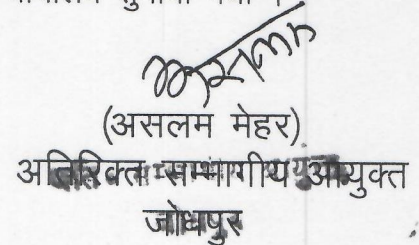 (असलम मेहर)
अतिरिक्त सम्भागीय आयुक्त
जोधपुर